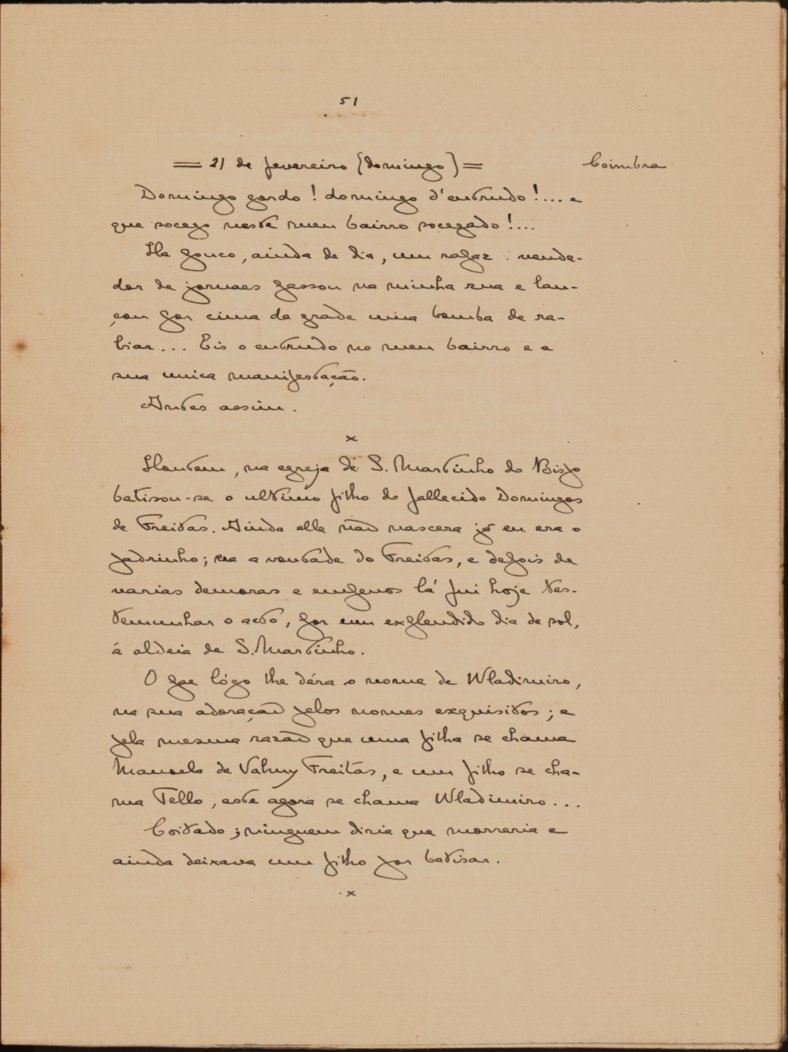 51
= 21 de fevereiro (domingo) = Coimbra
Domingo gordo! domingo d'entrudo!... e
que socego neste meu bairro socegado!...
Ha pouco, ainda de dia, um rapaz vende-
dor de jornaes passou na minha rua e lan-
çou por cima da grade uma bomba de ra-
biar... Eis o entrudo no meu bairro e a
sua unica manifestação.
Antes assim.
x
Hontem, na egreja de S. Martinho do Bispo
batisou-se o ultimo filho do fallecido Domingos
de Freitas. Ainda elle não nascera já eu era o
padrinho; era a vontade do Freitas, e depois de
varias demoras e empenos lá fui hoje tes-
temunhar o acto, por um explendido dia de sol,
á aldeia de S. Martinho.
O pae lógo lhe déra o nome de Wladimiro,
na sua adoração pelos nomes exquisitos; e
pela mesma razão que uma filha se chama
Manuela de Valmy Freitas, e um filho se cha-
ma Tello, este agora se chama Wladimiro...
Coitado; ninguem diria que morreria e
ainda deixava um filho por batisar.
x